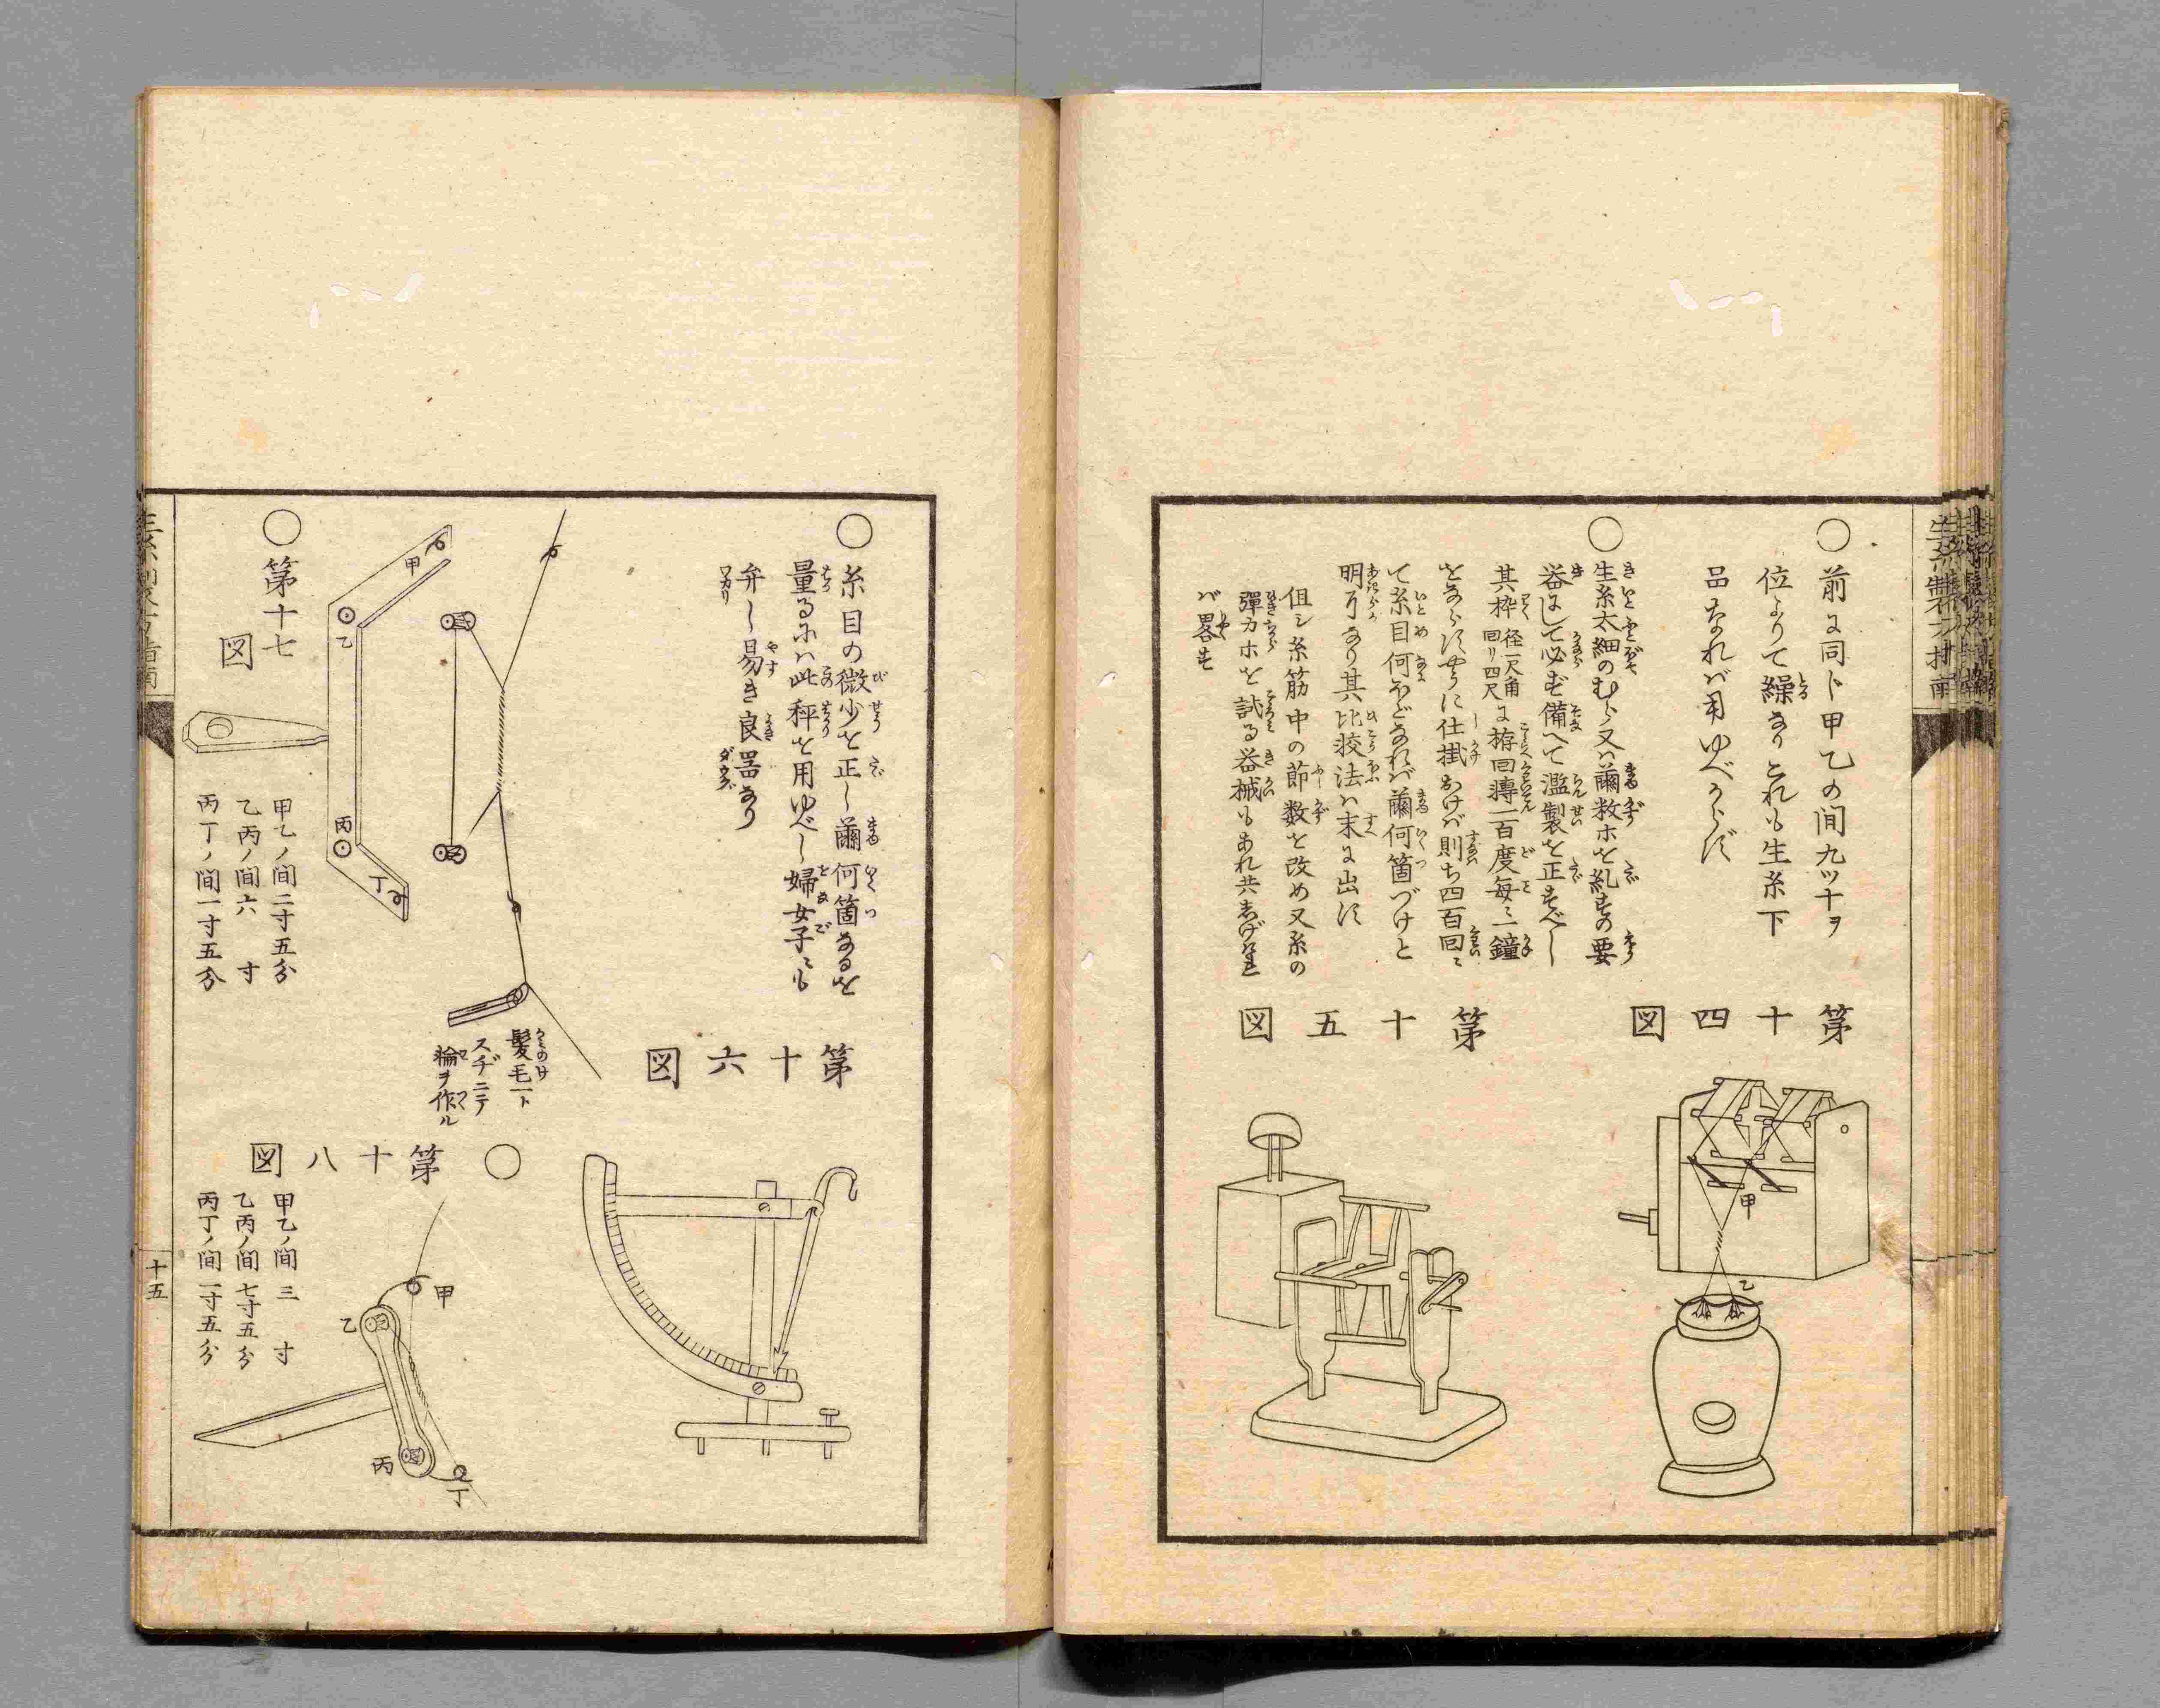 ○前に同ト甲乙の間九ツ十ヲ
位よりて繰なりこれも生糸下
品なれバ用ゆべからず
○生糸太細のむら又ハ繭数ホを糺すの要
器にして必ず備へて濫製を正すべし
其枠径一尺角回リ四尺に拵回轉一百度毎ニ一鐘
をならす様に仕掛おけバ則ち四百回ニ
て糸目何ほどなれバ繭何箇づけと
明了なり其比挍法ハ末に出す
但シ糸筋中の節数を改め又糸の
彈力ホを試る器械もあれ共
バ畧す
第十四図
甲
乙
第十五図
○糸目の微少を正し繭何箇なるを
量るにハ此秤を用ゆべし婦女子ニも
弁し易き良噐なり
第十六図
髪毛一ト
スヂニテ
輪ヲ作ル
○第十七
図
甲
乙
丙
丁
甲乙ノ間二寸五分
乙丙ノ間六寸
丙丁ノ間一寸五分
○第十八図
甲乙ノ間三寸
乙丙ノ間七寸五分
丙丁ノ間一寸五分
甲
乙
丙
丁
十五